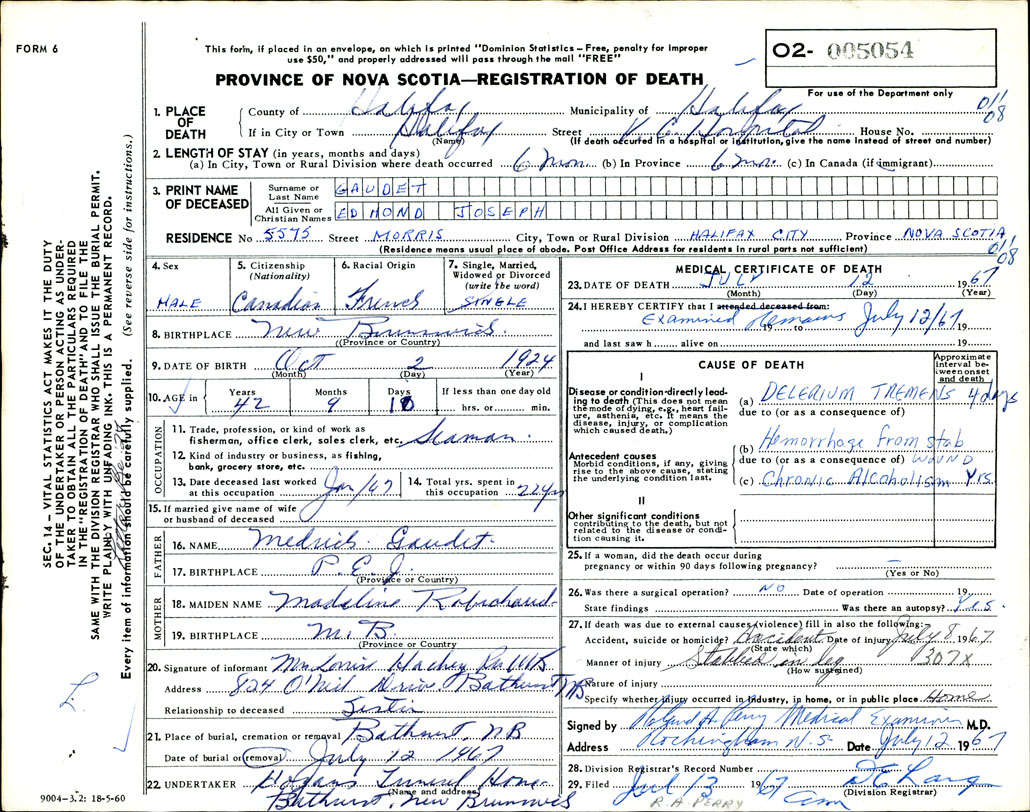 FORM 6
This form, if placed in an envelope, on which is printed "Dominion Statistics – Free, penalty for improper
use $50," and properly addressed will pass through the mail "FREE"
O2- 005054
PROVINCE OF NOVA SCOTIA—REGISTRATION OF DEATH
For use of the Department only
011
08
1. PLACE OF DEATH
County of Halifax Municipality of Halifax
If in City or Town Halifax Street V. G. Hospital House No.
(Name) (If death occurred in a hospital or institution, give the name instead of street and number)
2. LENGTH OF STAY (in years, months and days)
(a) In City, Town or Rural Division where death occurred 6 mon. (b) In Province 6 mon. (c) In Canada (if immigrant)
3. PRINT NAME OF DECEASED
Surname or Last Name GAUDET
All Given or Christian Names EDMOND JOSEPH
RESIDENCE No 5575 Street MORRIS City, Town or Rural Division HALIFAX CITY Province NOVA SCOTIA
(Residence means usual place of abode. Post Office Address for residents in rural parts not sufficient)
011
08
4. Sex MALE
5. Citizenship (Nationality) Canadian
6. Racial Origin French
7. Single, Married, Widowed or Divorced (write the word) SINGLE
8. BIRTHPLACE New Brunswick
(Province or Country)
9. DATE OF BIRTH Oct 2 1924
(Month) (Day) (Year)
10. AGE in Years 42 Months 9 Days 10 If less than one day old
hrs. or min.
OCCUPATION
11. Trade, profession, or kind of work as
fisherman, office clerk, sales clerk, etc. Seaman
12. Kind of industry or business, as fishing,
bank, grocery store, etc.
13. Date deceased last worked
at this occupation Jan/67
14. Total yrs. spent in
this occupation 22 yrs
15. If married give name of wife
or husband of deceased
FATHER
16. NAME Medric Gaudet
17. BIRTHPLACE P.E.I.
(Province or Country)
MOTHER
18. MAIDEN NAME Madeline Robichaud
19. BIRTHPLACE N.B.
(Province or Country)
20. Signature of informant Mrs Louis Hachey
Address 824 O'Neil Drive Bathurst NB
Relationship to deceased Sister
21. Place of burial, cremation or removal Bathurst, NB
Date of burial or removal July 12 1967
22. UNDERTAKER Funeral Home
(Name and address)
Bathurst, New Brunswick
MEDICAL CERTIFICATE OF DEATH
23. DATE OF DEATH JULY 12 1967
(Month) (Day) (Year)
24. I HEREBY CERTIFY that I attended deceased from:
Examined Remains July 12/67 19
19 to
and last saw h alive on 19
CAUSE OF DEATH
Approximate interval between onset and death
I
Disease or condition directly leading to death (This does not mean the mode of dying, e.g., heart failure, asthenia, etc. It means the disease, injury, or complication which caused death.)
(a) DELERIUM TREMENS 4 days
due to (or as a consequence of)
Antecedent causes
Morbid conditions, if any, giving rise to the above cause, stating the underlying condition last.
(b) Hemorrhage from stab
due to (or as a consequence of) WOUND
(c) Chronic Alcoholism Yrs.
II
Other significant conditions
contributing to the death, but not related to the disease or condition causing it.
25. If a woman, did the death occur during
pregnancy or within 90 days following pregnancy? –
(Yes or No)
26. Was there a surgical operation? NO Date of operation 19
State findings Was there an autopsy? Yes.
27. If death was due to external causes (violence) fill in also the following:
Accident, suicide or homicide? Accident Date of injury July 8 1967
(State which)
Manner of injury Stabbed in leg 307X
(How sustained)
Nature of injury
Specify whether injury occurred in industry, in home, or in public place Home
Signed by Roland A. Perry Medical Examiner M.D.
Address Rockingham N.S. Date July 12 1967
28. Division Registrar's Record Number
29. Filed Jul 13 1967
(Division Registrar)
R.A. PERRY
SEC. 14 – VITAL STATISTICS ACT MAKES IT THE DUTY
OF THE UNDERTAKER OR PERSON ACTING AS UNDER-
TAKER TO OBTAIN ALL THE PARTICULARS REQUIRED
IN THE "REGISTRATION OF DEATH" AND TO FILE THE
SAME WITH THE DIVISION REGISTRAR WHO SHALL ISSUE THE BURIAL PERMIT.
WRITE PLAINLY WITH UNFADING INK. THIS IS A PERMANENT RECORD.
Every item of information should be carefully supplied. (See reverse side for instructions.)
9004–3.2: 18-5-60